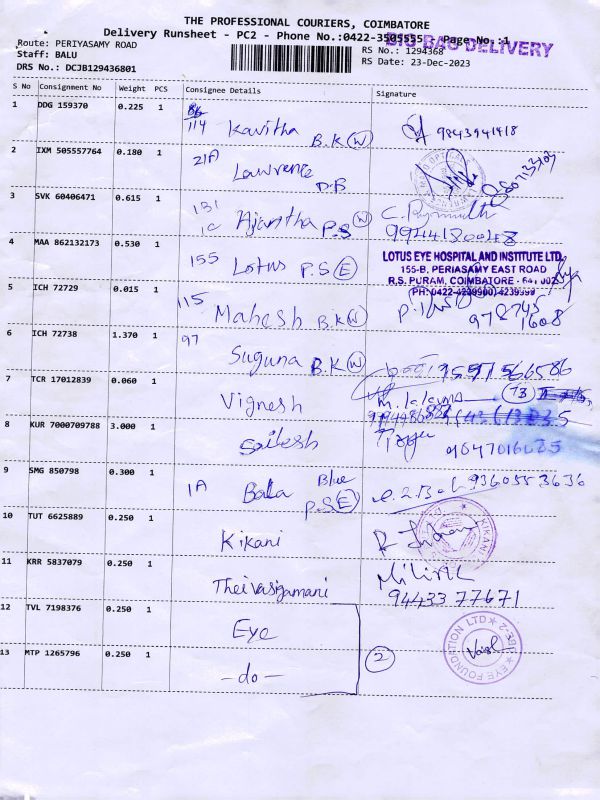 THE PROFESSIONAL COURIERS, COIMBATORE
Delivery Runsheet - PC2 - Phone No.:0422-3505555 Page No.:1
BIG BAG DELIVERY
Route: PERIYASAMY ROAD
Staff: BALU
DRS No.: DCJB129436801
RS No.: 1294368
RS Date: 23-Dec-2023
S No Consignment No Weight PCS Consignee Details Signature
1 DDG 159370 0.225 1 114 Kavitha B.K (W) 9843941418
2 IXM 505557764 0.180 1 21A Lawrence D.B
3 SVK 60406471 0.615 1 131 Ajantha P.S (W)
4 MAA 862132173 0.530 1 155 Lotus P.S (E)
LOTUS EYE HOSPITAL AND INSTITUTE LTD.
155-B, PERIASAMY EAST ROAD
R.S. PURAM, COIMBATORE - 641 002
PH: 0422-4229900, 4239999
5 ICH 72729 0.015 1 115 Mahesh B.K (W) 978745 1608
6 ICH 72738 1.370 1 97 Suguna B.K (W) 9597566586
7 TCR 17012839 0.060 1 Vignesh (73)
8 KUR 7000709788 3.000 1 Sailesh
9 SMG 850798 0.300 1 1A Bala Blue P.S (E) 9360553636
10 TUT 6625889 0.250 1 Kikani
KIKANI
11 KRR 5837079 0.250 1 Theivasigamani 94433 77671
12 TVL 7198376 0.250 1 Eye
13 MTP 1265796 0.250 1 -do- (2)
EYE FOUNDATION LTD